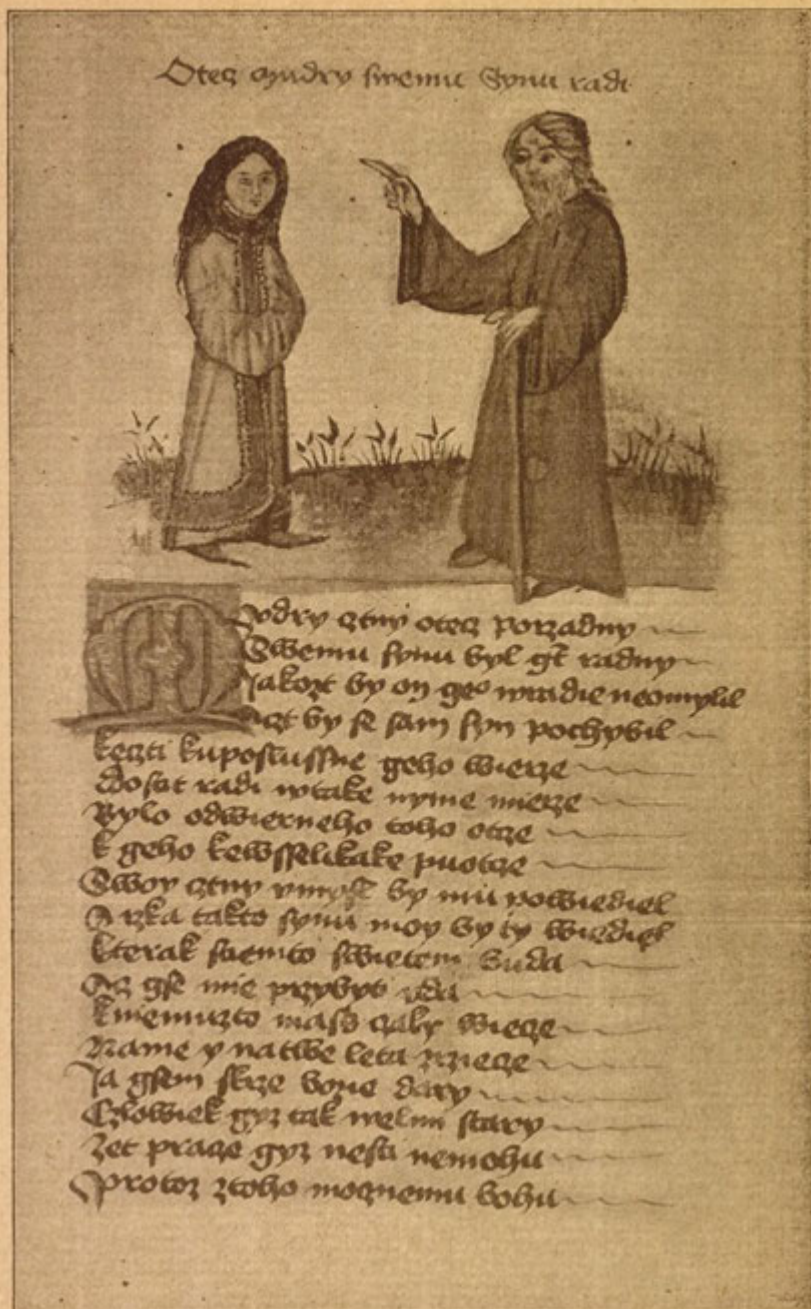 Otecz mudry swemu Synu radi
Mudry cztny otecz porzadny
Swemu synu byl gt radny
Jakozt by on geo wradie neomylil
Anizt by se sam syn pochybil
keczti kuposlussne geho wierze
Dosit radi wtake nyme mierze
Bylo odwierneho toho otcze
k geho kewsselikake puotcze
Swoy cztny vmysl by mu powiediel
A rzka takto synu moy by ty wiediel
kterak stiemto swietem
Az gse mie przybyt zda
kniemuzto mass czaly wiecze
Name y natwe leta zrziecze
Ja gsem skrze bozie dary
Czlowiek gyz tak welmi stary
Zet pracze gyz nesti nemohu
Protoz ztoho mocznemu bohu